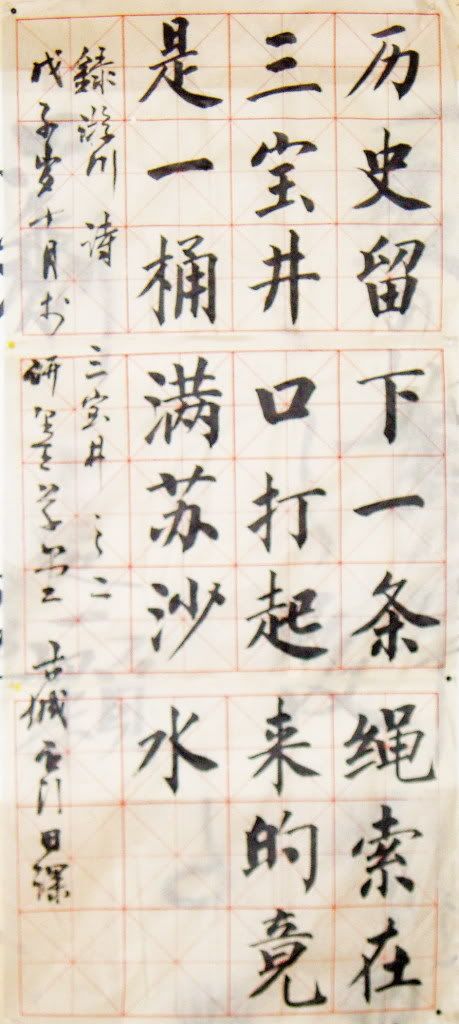 历史留下一条绳索在
三宝井口打起来的竟
是一桶满苏沙水
録川 诗 三宝井 之二
戊子岁十月於研墨草堂 古城门日课